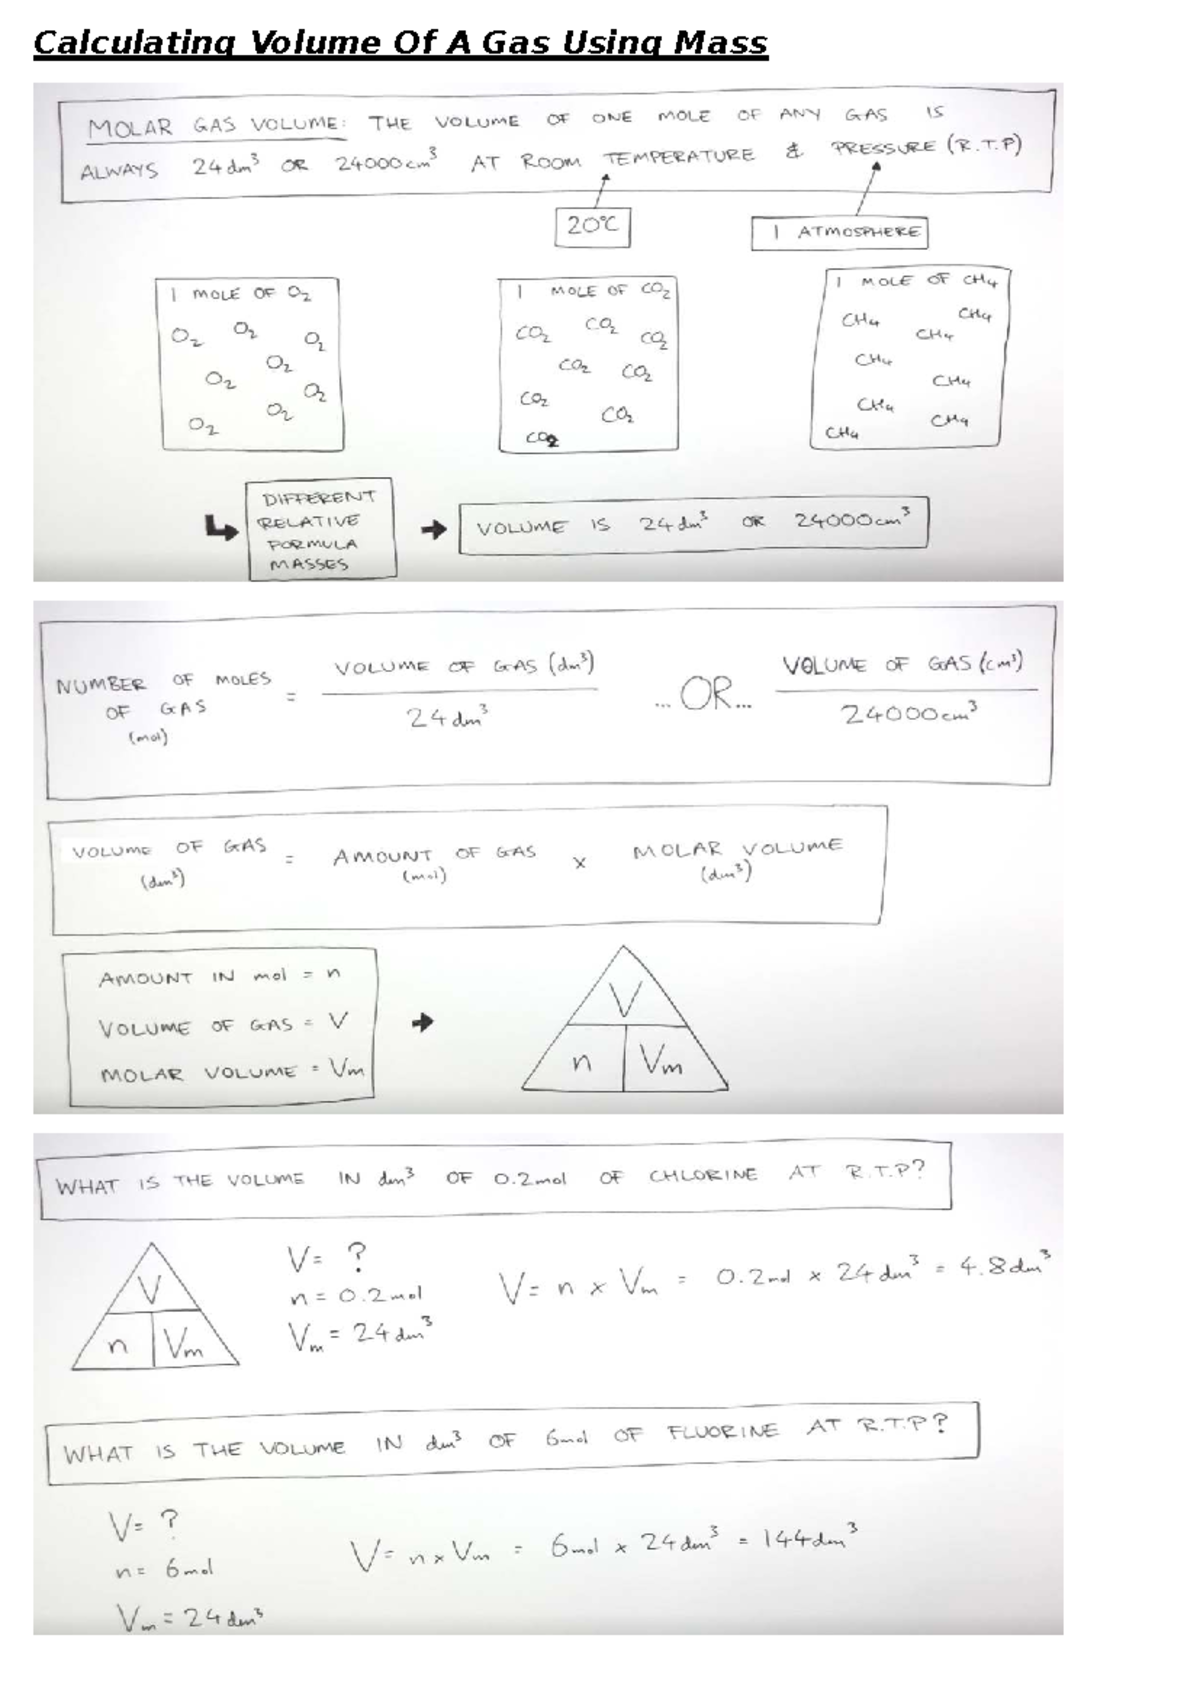 Calculating Volume Of A Gas Using Mass
MOLAR GAS VOLUME: THE VOLUME OF ONE MOLE OF ANY GAS IS
ALWAYS 24dm³ OR 24000cm³ AT ROOM TEMPERATURE & PRESSURE (R.T.P)
20°C
1 ATMOSPHERE
1 MOLE OF O₂
O₂ O₂ O₂
O₂
O₂ O₂
O₂
O₂
1 MOLE OF CO₂
CO₂ CO₂ CO₂
CO₂ CO₂
CO₂ CO₂
CO₂
1 MOLE OF CH₄
CH₄ CH₄
CH₄
CH₄
CH₄
CH₄ CH₄
CH₄
DIFFERENT
RELATIVE
FORMULA
MASSES
VOLUME IS 24dm³ OR 24000cm³
NUMBER OF MOLES
OF GAS
(mol)
=
VOLUME OF GAS (dm³)
24dm³
...OR...
VOLUME OF GAS (cm³)
24000cm³
VOLUME OF GAS = AMOUNT OF GAS x MOLAR VOLUME
(dm³) (mol) (dm³)
AMOUNT IN mol = n
VOLUME OF GAS = V
MOLAR VOLUME = Vm
V
n Vm
WHAT IS THE VOLUME IN dm³ OF 0.2mol OF CHLORINE AT R.T.P?
V
n Vm
V= ?
n = 0.2mol
Vm = 24dm³
V= n x Vm = 0.2mol x 24dm³ = 4.8dm³
WHAT IS THE VOLUME IN dm³ OF 6mol OF FLUORINE AT R.T.P?
V= ?
n= 6mol
Vm = 24dm³
V= n x Vm = 6mol x 24dm³ = 144dm³